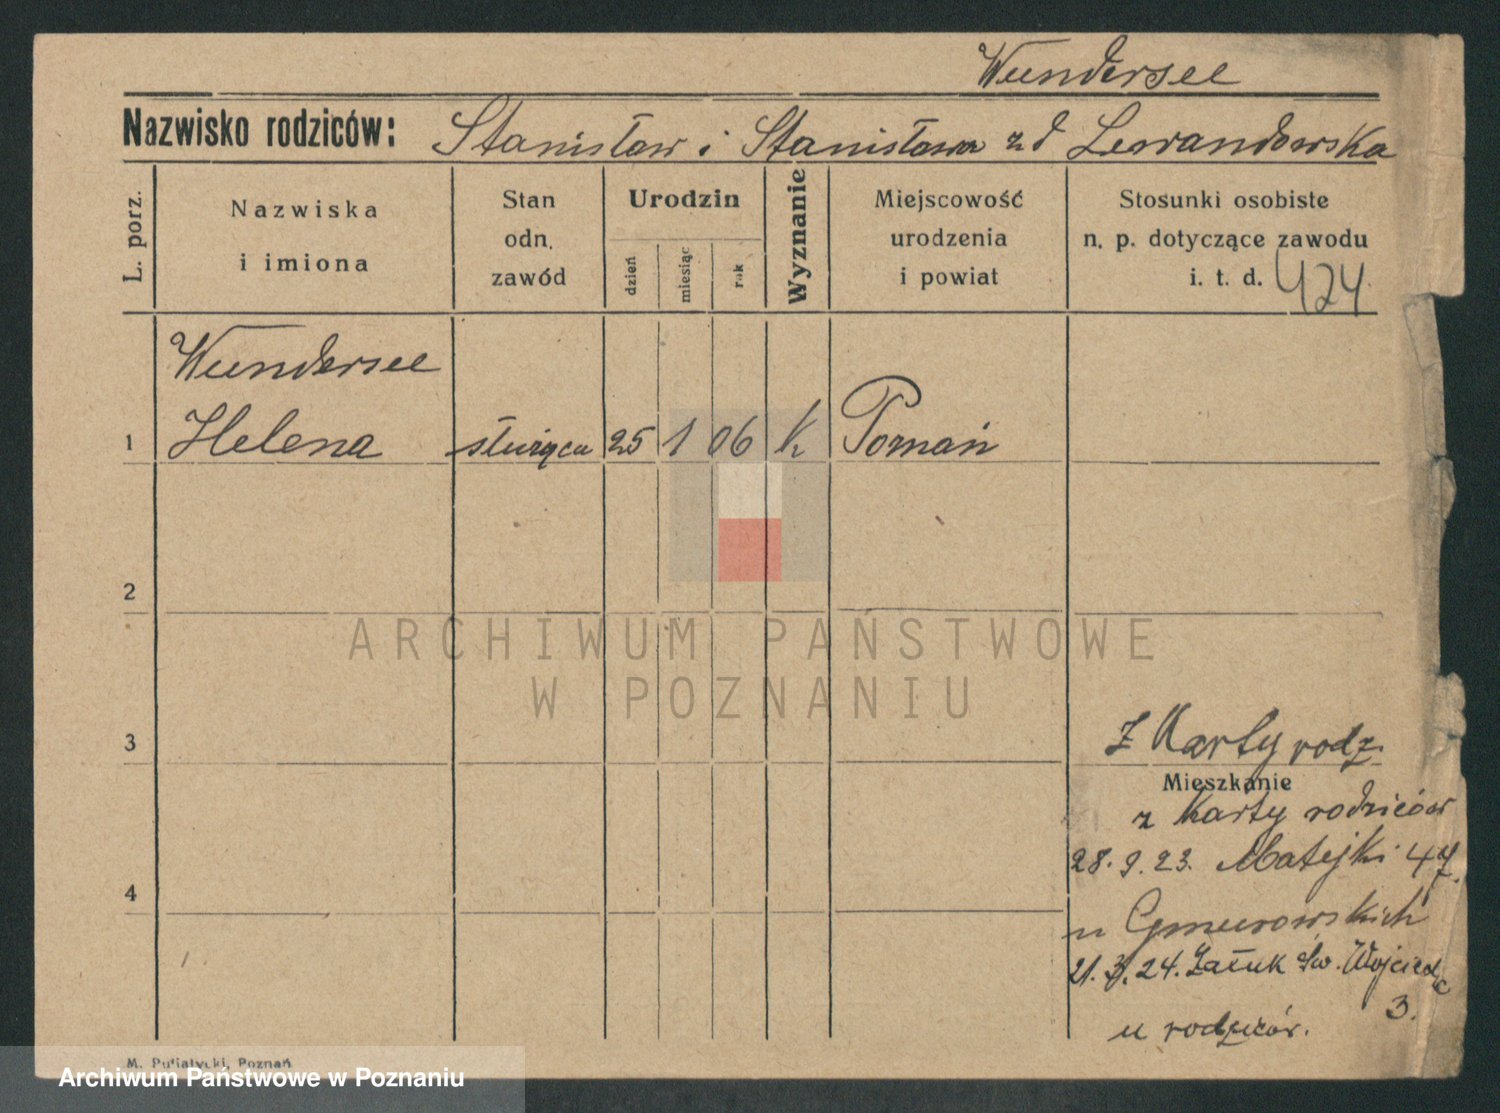 Wundersee
Nazwisko rodziców: Stanisław i Stanisława zd Lewandowska
L. porz.
Nazwiska
i imiona
Stan
odn.
zawód
Urodzin
dzień
miesiąc
rok
Wyznanie
Miejscowość
urodzenia
i powiat
Stosunki osobiste
n. p. dotyczące zawodu
i. t. d. 424
Wundersee
1 Helena służąca 25 1 06 K Poznań
2
ARCHIWUM PAŃSTWOWE
W POZNANIU
3 z Karty rodz.
Mieszkanie
z Karty rodziców
28. 9. 23. Matejki 47.
4
u Gmurowskich
21. 3. 24. Zaułk Św. Wojciech
3.
u rodziców.
M. Putiatycki, Poznań
Archiwum Państwowe w Poznaniu